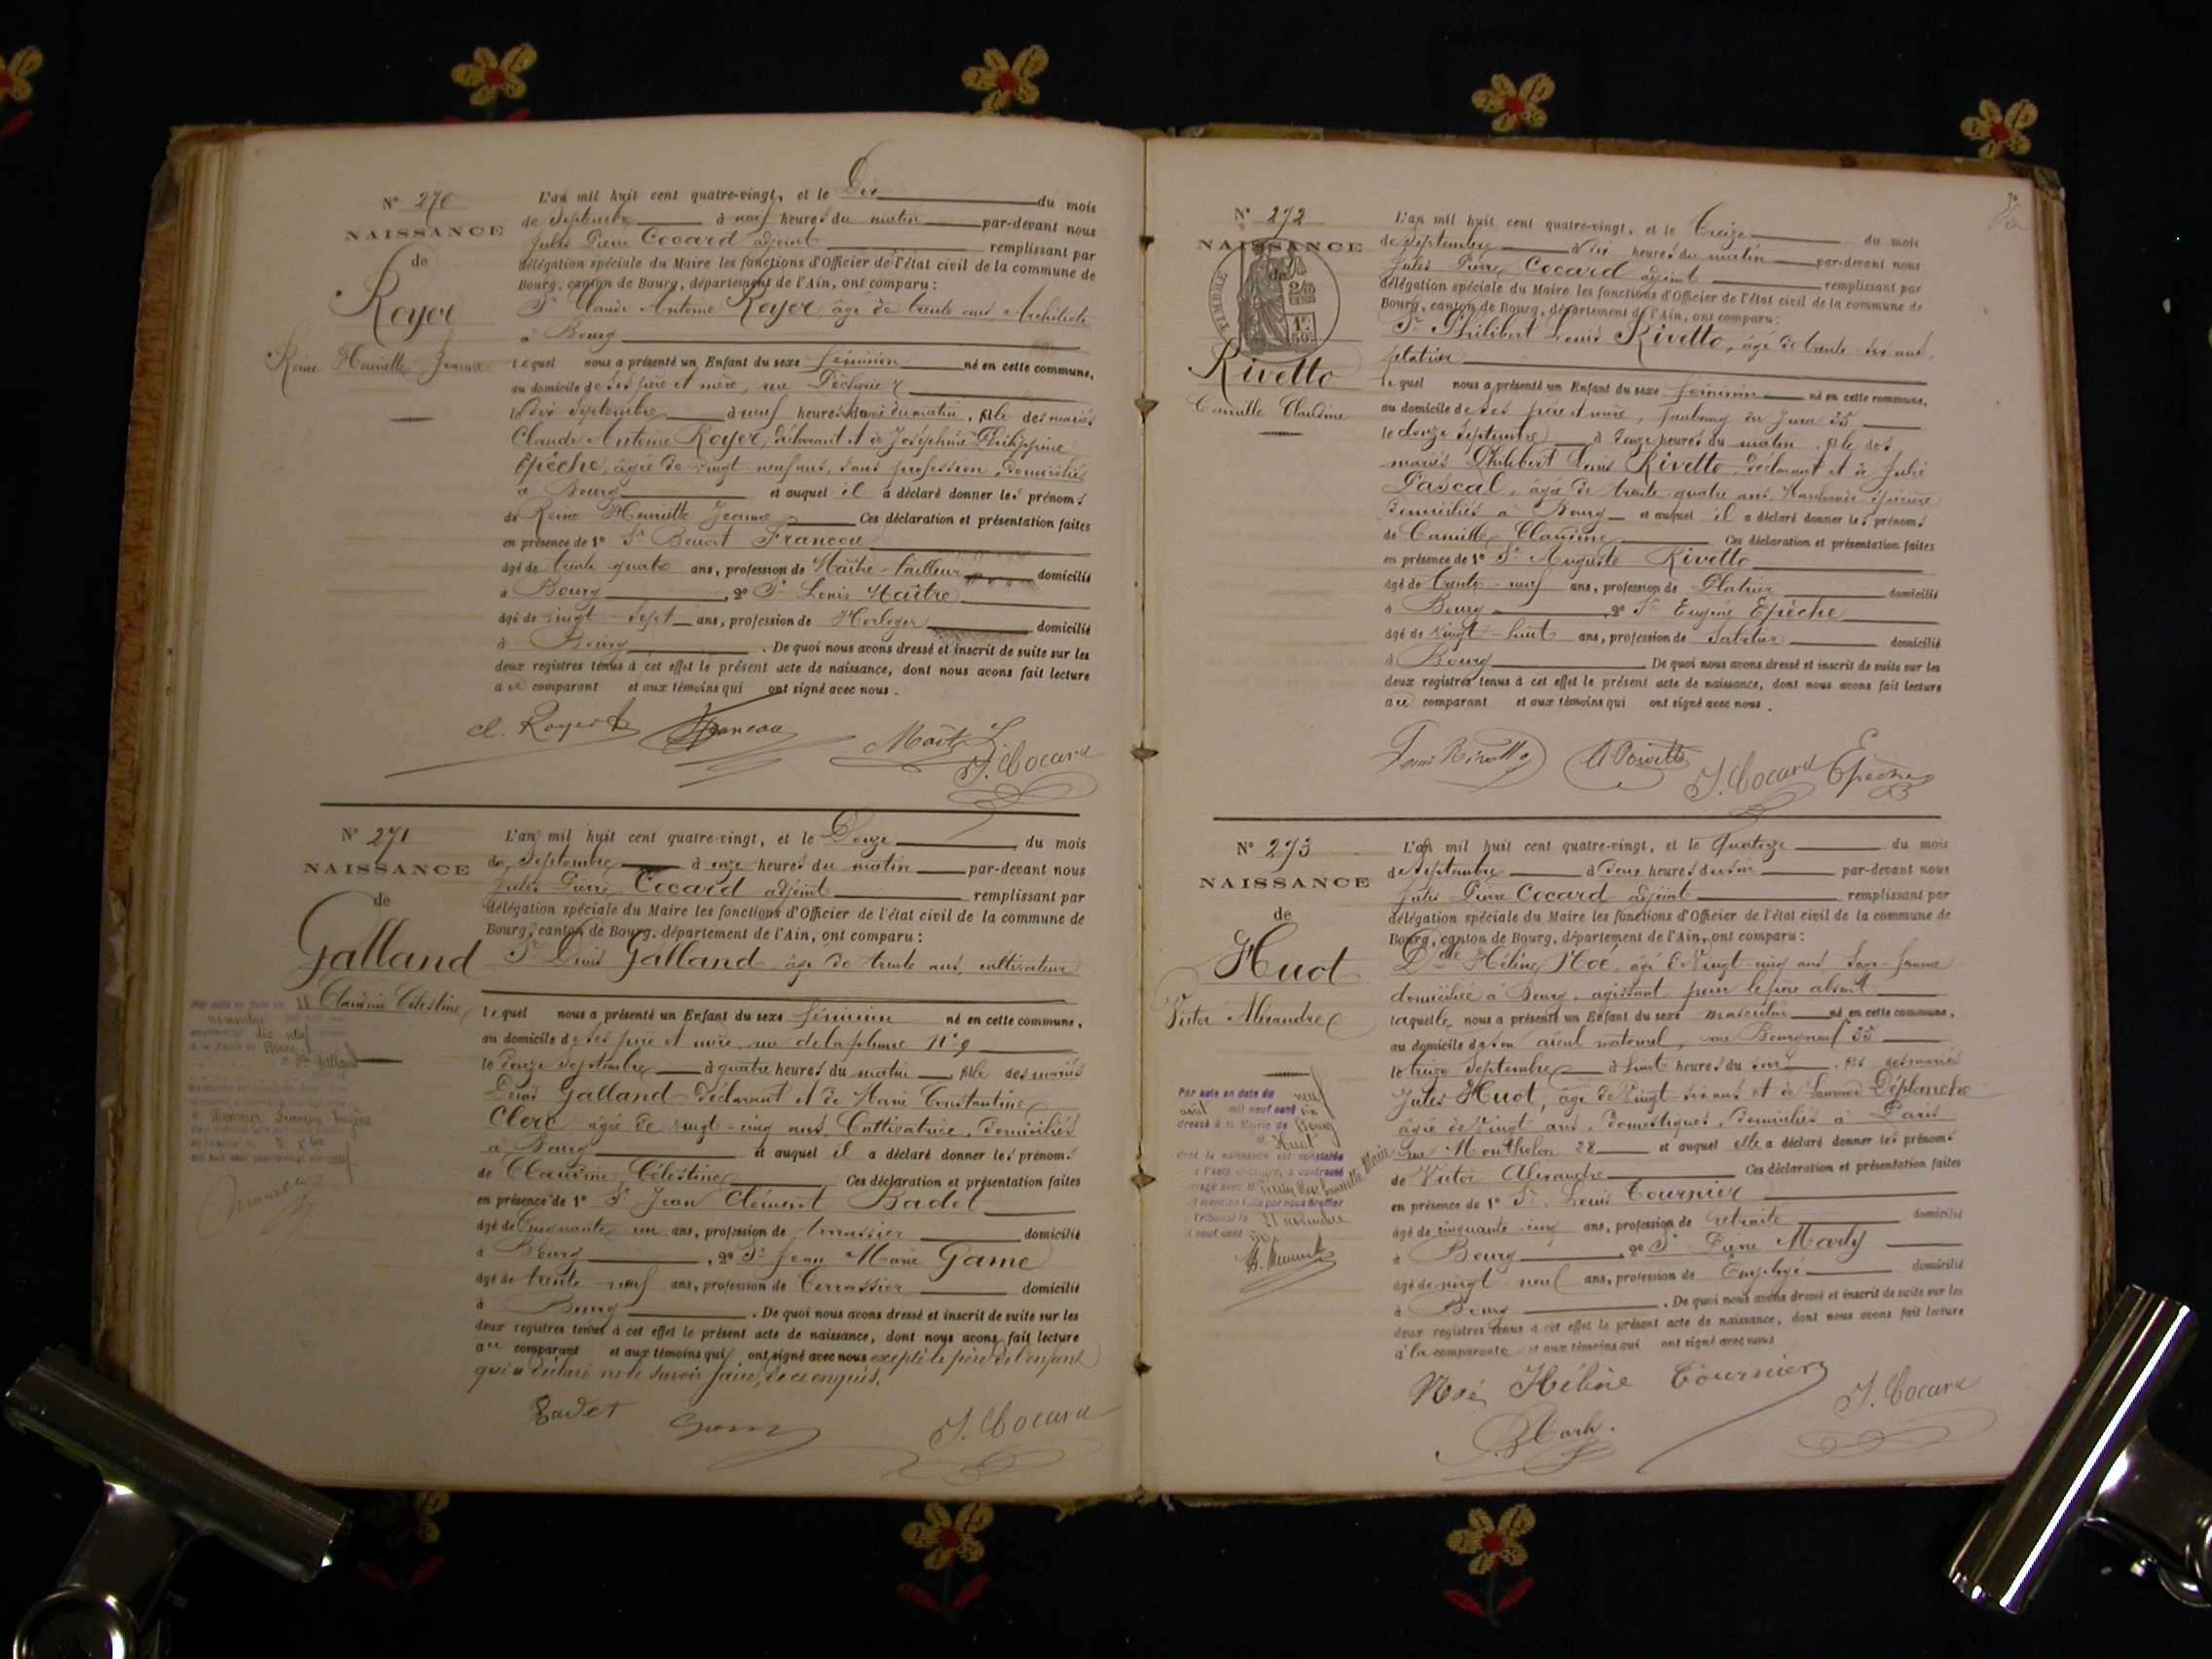 N° 270
NAISSANCE
de
Royer
Reine Henriette Jeanne
L'an mil huit cent quatre-vingt, et le Dix du mois
de Septembre à neuf heures du matin par-devant nous
Jules Pierre Cocard adjoint remplissant par
délégation spéciale du Maire les fonctions d'Officier de l'état civil de la commune de
Bourg, canton de Bourg, département de l'Ain, ont comparu :
Sr Claude Antoine Royer, âgé de trente ans, Architecte
à Bourg
lequel nous a présenté un Enfant du sexe féminin né en cette commune,
au domicile de ses père et mère, rue
le dix Septembre à neuf heures du matin, fille des mariés
Claude Antoine Royer, déclarant et de Joséphine Philippine
Epêche, âgée de vingt-neuf ans, sans profession, domiciliés
à Bourg et auquel il a déclaré donner les prénoms
de Reine Henriette Jeanne Ces déclaration et présentation faites
en présence de 1° Sr Benoît Francou
âgé de trente quatre ans, profession de Maître-tailleur domicilié
à Bourg , 2° Sr Louis Maître
âgé de vingt-sept ans, profession de Horloger domicilié
à Bourg . De quoi nous avons dressé et inscrit de suite sur les
deux registres tenus à cet effet le présent acte de naissance, dont nous avons fait lecture
au comparant et aux témoins qui ont signé avec nous.
cl. Royer Francou Maître L. J. Cocard
N° 271
NAISSANCE
de
Galland
Claudine Célestine
L'an mil huit cent quatre-vingt, et le Douze du mois
de Septembre à onze heures du matin par-devant nous
Jules Pierre Cocard adjoint remplissant par
délégation spéciale du Maire les fonctions d'Officier de l'état civil de la commune de
Bourg, canton de Bourg, département de l'Ain, ont comparu :
Sr Denis Galland, âgé de trente ans, cultivateur
lequel nous a présenté un Enfant du sexe féminin né en cette commune,
au domicile de ses père et mère, rue de la plume N° 9
le douze Septembre à quatre heures du matin, fille des mariés
Denis Galland déclarant et de Marie Constantine
Clerc âgée de vingt-cinq ans, Cultivatrice, domiciliés
à Bourg et auquel il a déclaré donner les prénoms
de Claudine Célestine Ces déclaration et présentation faites
en présence de 1° Sr Jean Clément Badet
âgé de Cinquante un ans, profession de terrassier domicilié
à Bourg , 2° Sr Jean Marie Game
âgé de trente neuf ans, profession de terrassier domicilié
à Bourg . De quoi nous avons dressé et inscrit de suite sur les
deux registres tenus à cet effet le présent acte de naissance, dont nous avons fait lecture
au comparant et aux témoins qui ont signé avec nous excepté le père de l'enfant
qui a déclaré ne le savoir faire, de ce enquis.
Badet Game J. Cocard
N° 272
NAISSANCE
de
TIMBRE
Rivetto
Camille Claudine
L'an mil huit cent quatre-vingt, et le treize du mois
de Septembre à dix heures du matin par-devant nous
Jules Pierre Cocard adjoint remplissant par
délégation spéciale du Maire les fonctions d'Officier de l'état civil de la commune de
Bourg, canton de Bourg, département de l'Ain, ont comparu :
Sr Philibert Louis Rivetto, âgé de trente six ans,
plâtrier
lequel nous a présenté un Enfant du sexe féminin né en cette commune,
au domicile de ses père et mère, faubourg du Jura 35
le douze Septembre à douze heures du matin, fille des
mariés Philibert Louis Rivetto, déclarant et de Julie
Pascal, âgée de trente-quatre ans, Marchande épicière
domiciliés à Bourg et auquel il a déclaré donner les prénoms
de Camille Claudine Ces déclaration et présentation faites
en présence de 1° Sr Auguste Rivetto
âgé de trente-neuf ans, profession de Plâtrier domicilié
à Bourg , 2° Sr Eugène Epêche
âgé de vingt-huit ans, profession de Sabotier domicilié
à Bourg . De quoi nous avons dressé et inscrit de suite sur les
deux registres tenus à cet effet le présent acte de naissance, dont nous avons fait lecture
au comparant et aux témoins qui ont signé avec nous.
Louis Rivetto A Rivetto J. Cocard Epêche
N° 273
NAISSANCE
de
Huot
Victor Alexandre
Par acte en date du neuf
août mil neuf cent six
dressé à la Mairie de Bourg
M. Huot
dont la naissance est constatée
21 novembre
L'an mil huit cent quatre-vingt, et le Quatorze du mois
de Septembre à Deux heures du soir par-devant nous
Jules Pierre Cocard adjoint remplissant par
délégation spéciale du Maire les fonctions d'Officier de l'état civil de la commune de
Bourg, canton de Bourg, département de l'Ain, ont comparu :
Delle Hélène Noé, âgée de Vingt-cinq ans, Sage-femme
domiciliée à Bourg, agissant pour le père absent
laquelle nous a présenté un Enfant du sexe masculin né en cette commune,
au domicile de son aïeul maternel, rue Bourgneuf 35
le treize Septembre à huit heures du soir, fils des mariés
Jules Huot, âgé de Vingt-six ans et de Déplanche
âgée de Vingt ans, domestiques, domiciliés à Paris
rue Montholon 28 et auquel elle a déclaré donner les prénoms
de Victor Alexandre Ces déclaration et présentation faites
en présence de 1° Sr Louis Tournier
âgé de cinquante-cinq ans, profession de retraité domicilié
à Bourg , 2° Sr Pierre Marly
âgé de vingt-neuf ans, profession de Employé domicilié
à Bourg . De quoi nous avons dressé et inscrit de suite sur les
deux registres tenus à cet effet le présent acte de naissance, dont nous avons fait lecture
à la comparante et aux témoins qui ont signé avec nous
Noé Hélène Tournier J. Cocard